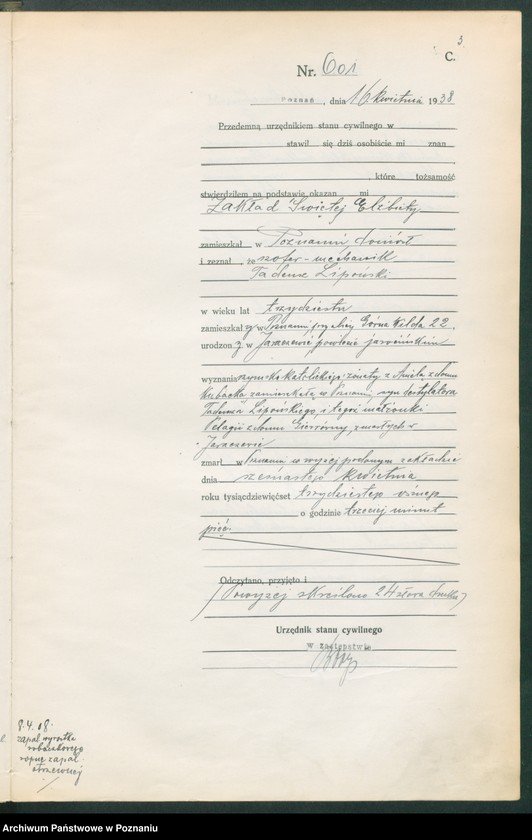 3
C.
Nr. 601
Poznań, dnia 16 kwietnia 1938
Przedemną urzędnikiem stanu cywilnego w
stawił się dziś osobiście mi znan
, które tożsamość
stwierdziłem na podstawie okazan mi
Zakład Świętej Elżbiety
zamieszkał w Poznaniu doniósł
i zeznał, że szofer-mechanik
Tadeusz Lipoński
w wieku lat trzydziestu
zamieszkał y w Poznaniu przy ulicy Górna Wilda 22.
urodzon y w Jaraczewie powiecie jarocińskim
wyznania rzymsko katolickiego żonaty z Anielą z domu
Kubacka zamieszkałą w Poznaniu, syn destylatora
Tadeusza Lipońskiego, i tegoż małżonki
Pelagii z domu zmarłych w
Jaraczewie
zmarł w Poznaniu w wyżej podanym zakładzie
dnia szesnastego kwietnia
roku tysiącdziewięćset trzydziestego ósmego
o godzinie trzeciej minut
pięć.
Odczytano, przyjęto i
(Powyżej skreślono 24 słowa druku)
Urzędnik stanu cywilnego
W zastępstwie
8.4.08.
zapal. wyrostka
robaczkowego
ropne zapal.
otrzewnej
Archiwum Państwowe w Poznaniu